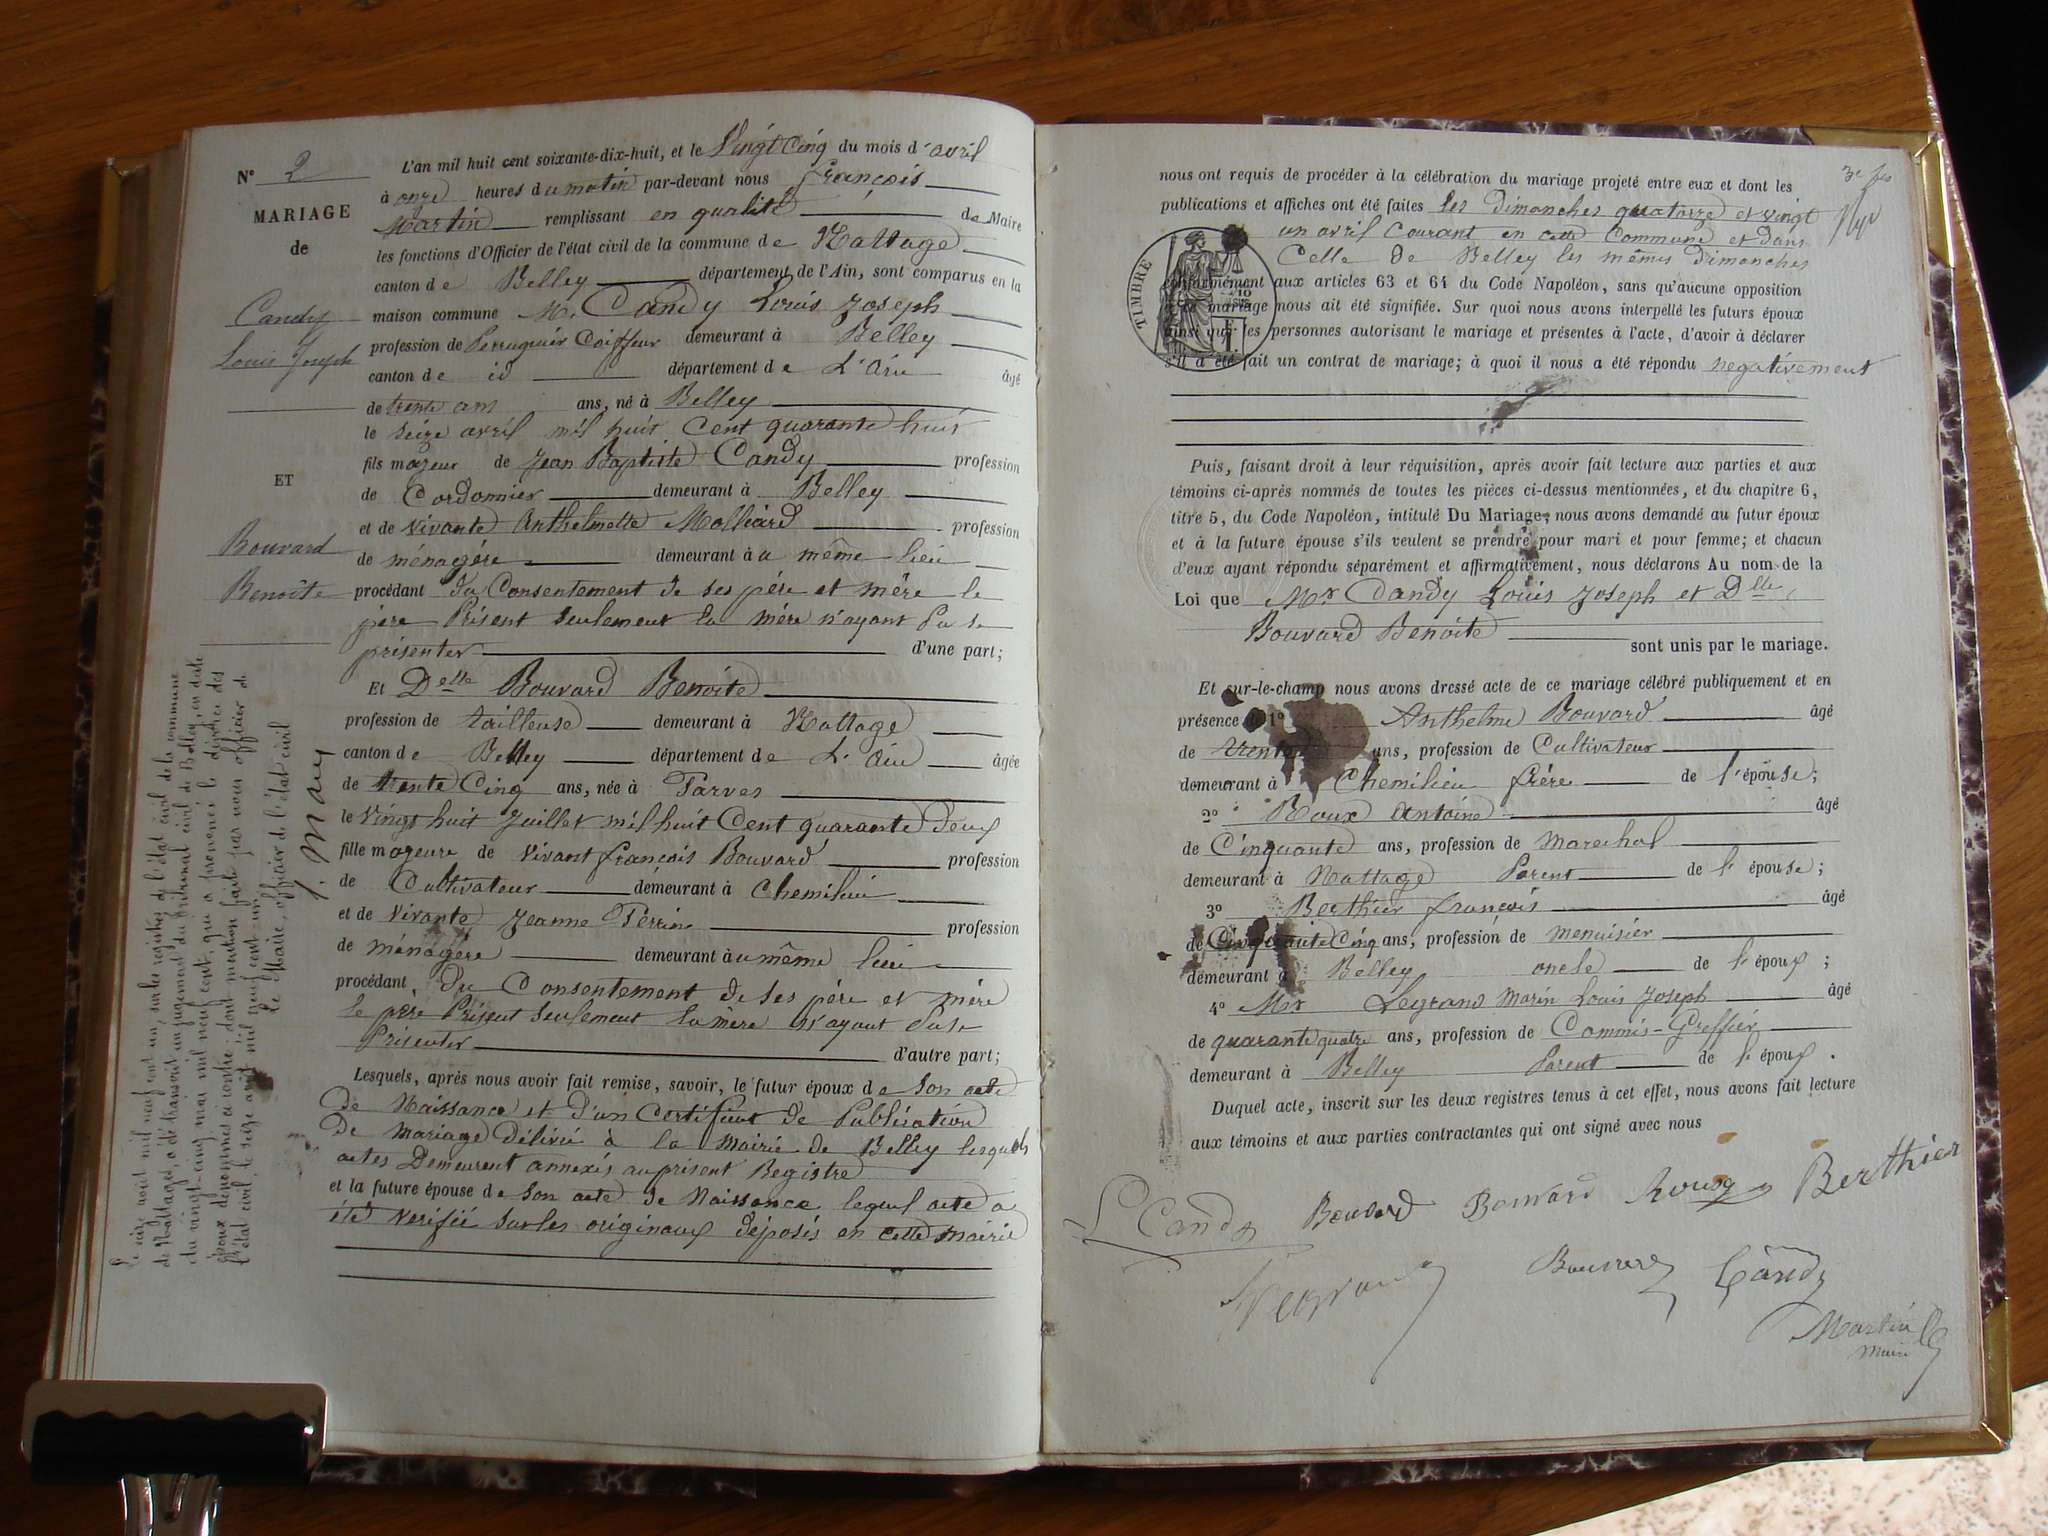 N° 2
MARIAGE
de
Candy
Louis Joseph
ET
Bouvard
Benoîte
L'an mil huit cent soixante-dix-huit, et le Vingt Cinq du mois d'avril
à onze heures du matin par-devant nous François
Martin remplissant en qualité de Maire
les fonctions d'Officier de l'état civil de la commune de Nattage
canton de Belley département de l'Ain, sont comparus en la
maison commune M. Candy Louis Joseph
profession de Perruquier Coiffeur demeurant à Belley
canton de id département de L'Ain âgé
de trente ans ans, né à Belley
le seize avril mil huit Cent quarante huit
fils majeur de Jean Baptiste Candy profession
de Cordonnier demeurant à Belley
et de vivante Anthelmette Molliard profession
de ménagère demeurant à u même lieu
procédant du Consentement de ses père et mère le
père Présent seulement la mère n'ayant Pu se
présenter d'une part;
Et Delle Bouvard Benoite
profession de tailleuse demeurant à Nattage
canton de Belley département de L'Ain âgée
de trente Cinq ans, née à Parves
le Vingt huit Juillet mil huit Cent quarante deux
fille majeure de Vivant françois Bouvard profession
de Cultivateur demeurant à Chemilieu
et de Vivante Jeanne Perrin profession
de ménagère demeurant à u même lieu
procédant du Consentement de ses père et mère
le père Présent seulement la mère n'ayant Pu se
Présenter d'autre part;
Lesquels, après nous avoir fait remise, savoir, le futur époux de son acte
de Naissance et d'un Certificat de Publication
de mariage Délivré à la mairie de Belley lesquels
actes Demeurent annexés au présent Registre
et la future épouse de son acte de Naissance lequel acte a
été vérifié sur les originaux déposés en cette mairie
Le seize août mil neuf cent un, sur les registres de l'état civil de la commune
de Nattages, a été transcrit un jugement du tribunal civil de Belley, en date
du vingt-cinq mai mil neuf cent, qui a prononcé le divorce des
époux dénommés ci contre; dont mention faite par nous officier de
l'état civil, le seize août mil neuf cent un.
Le Maire, officier de l'état civil
J. Mary
nous ont requis de procéder à la célébration du mariage projeté entre eux et dont les
publications et affiches ont été faites les dimanches quatorze et vingt
un avril courant en cette Commune et dans
Celle de Belley les mêmes dimanches
TIMBRE
conformément aux articles 63 et 64 du Code Napoléon, sans qu'aucune opposition
à ce mariage nous ait été signifiée. Sur quoi nous avons interpellé les futurs époux
ainsi que les personnes autorisant le mariage et présentes à l'acte, d'avoir à déclarer
s'il a été fait un contrat de mariage; à quoi il nous a été répondu négativement
Puis, faisant droit à leur réquisition, après avoir fait lecture aux parties et aux
témoins ci-après nommés de toutes les pièces ci-dessus mentionnées, et du chapitre 6,
titre 5, du Code Napoléon, intitulé Du Mariage, nous avons demandé au futur époux
et à la future épouse s'ils veulent se prendre pour mari et pour femme; et chacun
d'eux ayant répondu séparément et affirmativement, nous déclarons Au nom de la
Loi que Mr Candy Louis Joseph et Dlle
Bouvard Benoite sont unis par le mariage.
Et sur-le-champ nous avons dressé acte de ce mariage célébré publiquement et en
présence de 1° Anthelme Bouvard âgé
de trente ans, profession de Cultivateur
demeurant à Chemilieu frère de l'épouse;
2° Roux Antoine âgé
de Cinquante ans, profession de Marechal
demeurant à Nattage Parent de l'épouse;
3° Berthier françois âgé
de Cinquante Cinq ans, profession de menuisier
demeurant à Belley oncle de l'époux;
4° Mr Legrand Marin Louis Joseph âgé
de quarante quatre ans, profession de Commis-Greffier
demeurant à Belley Parent de l'époux.
Duquel acte, inscrit sur les deux registres tenus à cet effet, nous avons fait lecture
aux témoins et aux parties contractantes qui ont signé avec nous
L Candy Bouvard Bouvard Roux Berthier
Legrand Bouvard Candy
Martin
Maire